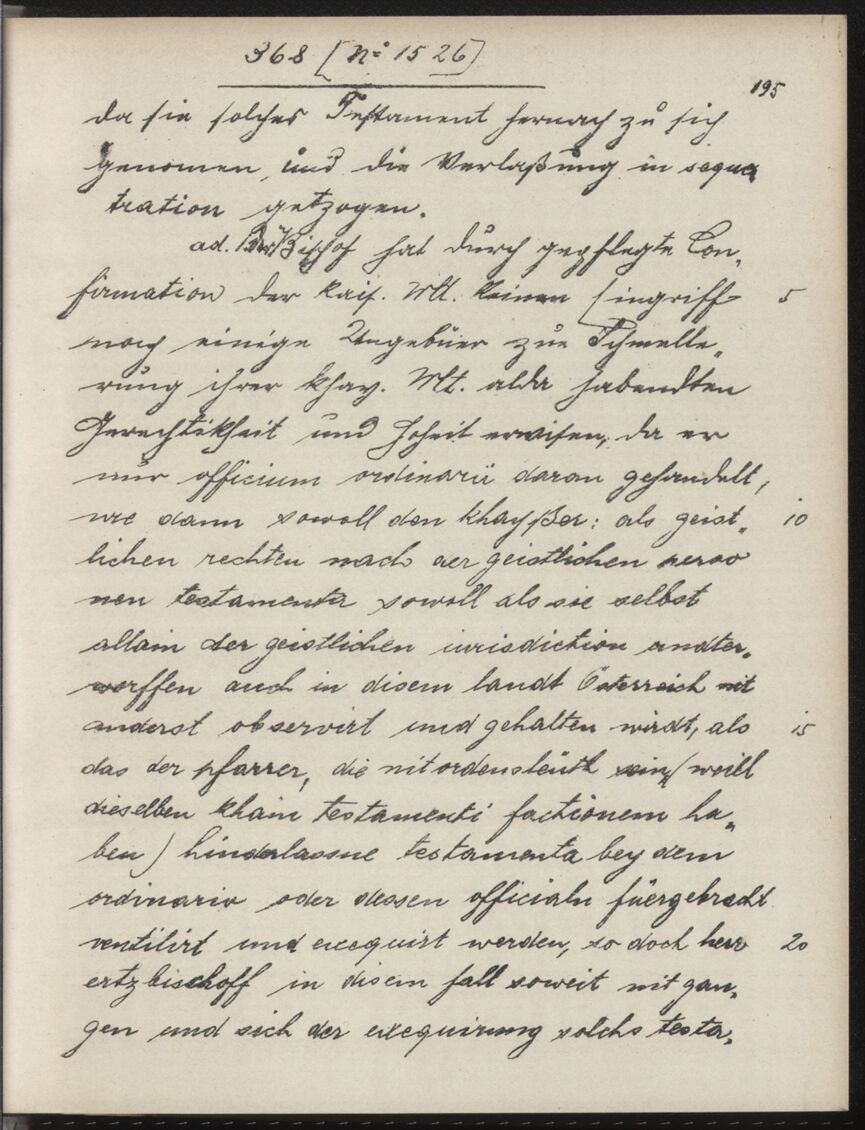 368 [No 1526]
195
da sie solches Testament hernach zu sich
genomen, und die Verlaßung in seque
tration getzogen.
ad. Bischof hat durch gepflegte Con„
firmation der kais. Mt. keinen eingriff
5
noch einige Ungebüer zue Schmelle„
rung ihrer khay. Mt. alda habendten
Gerechtikheit und hoheit erwisen, da er
nur officium ordinarii daran gehandelt,
wie dann sowoll den khayßer: als geist„
10
lichen rechten nach der geistlichen perso
nen testamenta sowoll als sie selbst
allain der geistlichen iurisdiction undter„
worffen auch in disem landt Österreich nit
anderst observirt und gehalten wirdt, als
15
das der pfarrer, die nit ordensleüth sein, (weill
dieselben khain testamenti factionem ha„
ben) hinderlassne testamenta bey dem
ordinario oder dessen officialn füergebracht
ventilirt und exequirt werden, so doch herr
20
ertzbischoff in disem fall soweit nit gan„
gen und sich der exequirung solchs testa„